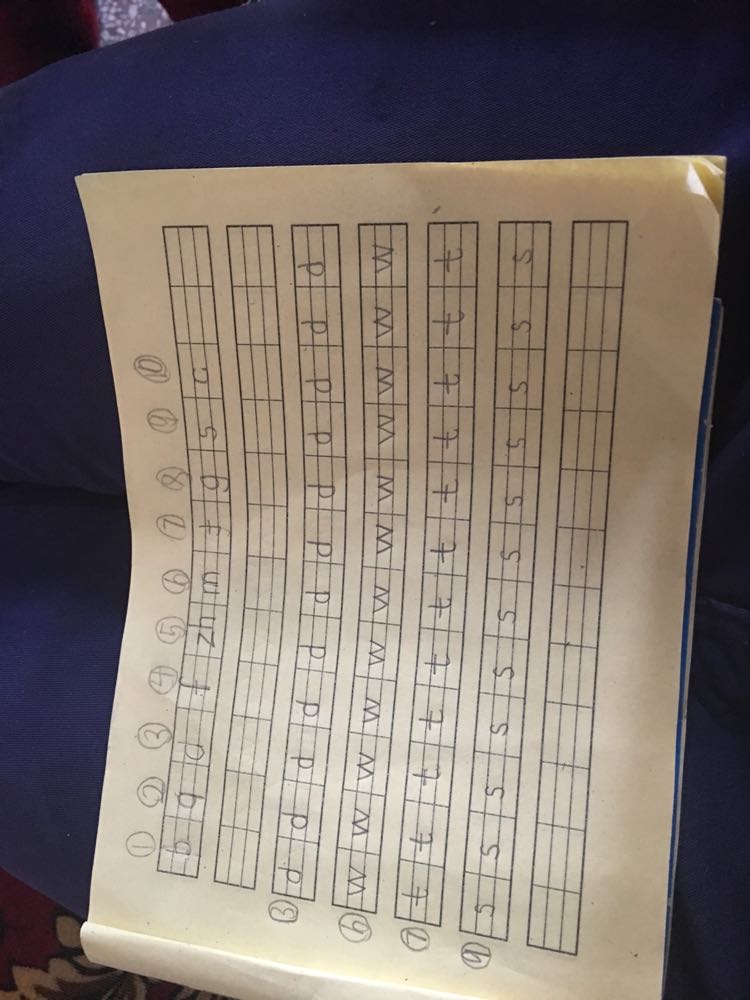 ① ② ③ ④ ⑤ ⑥ ⑦ ⑧ ⑨ ⑩
b q d f zh m g s c
③ d d d d d d d d d d d d
⑥ w w w w w w w w w w w w
⑦ t t t t t t t t t t t t
⑨ s s s s s s s s s s s s